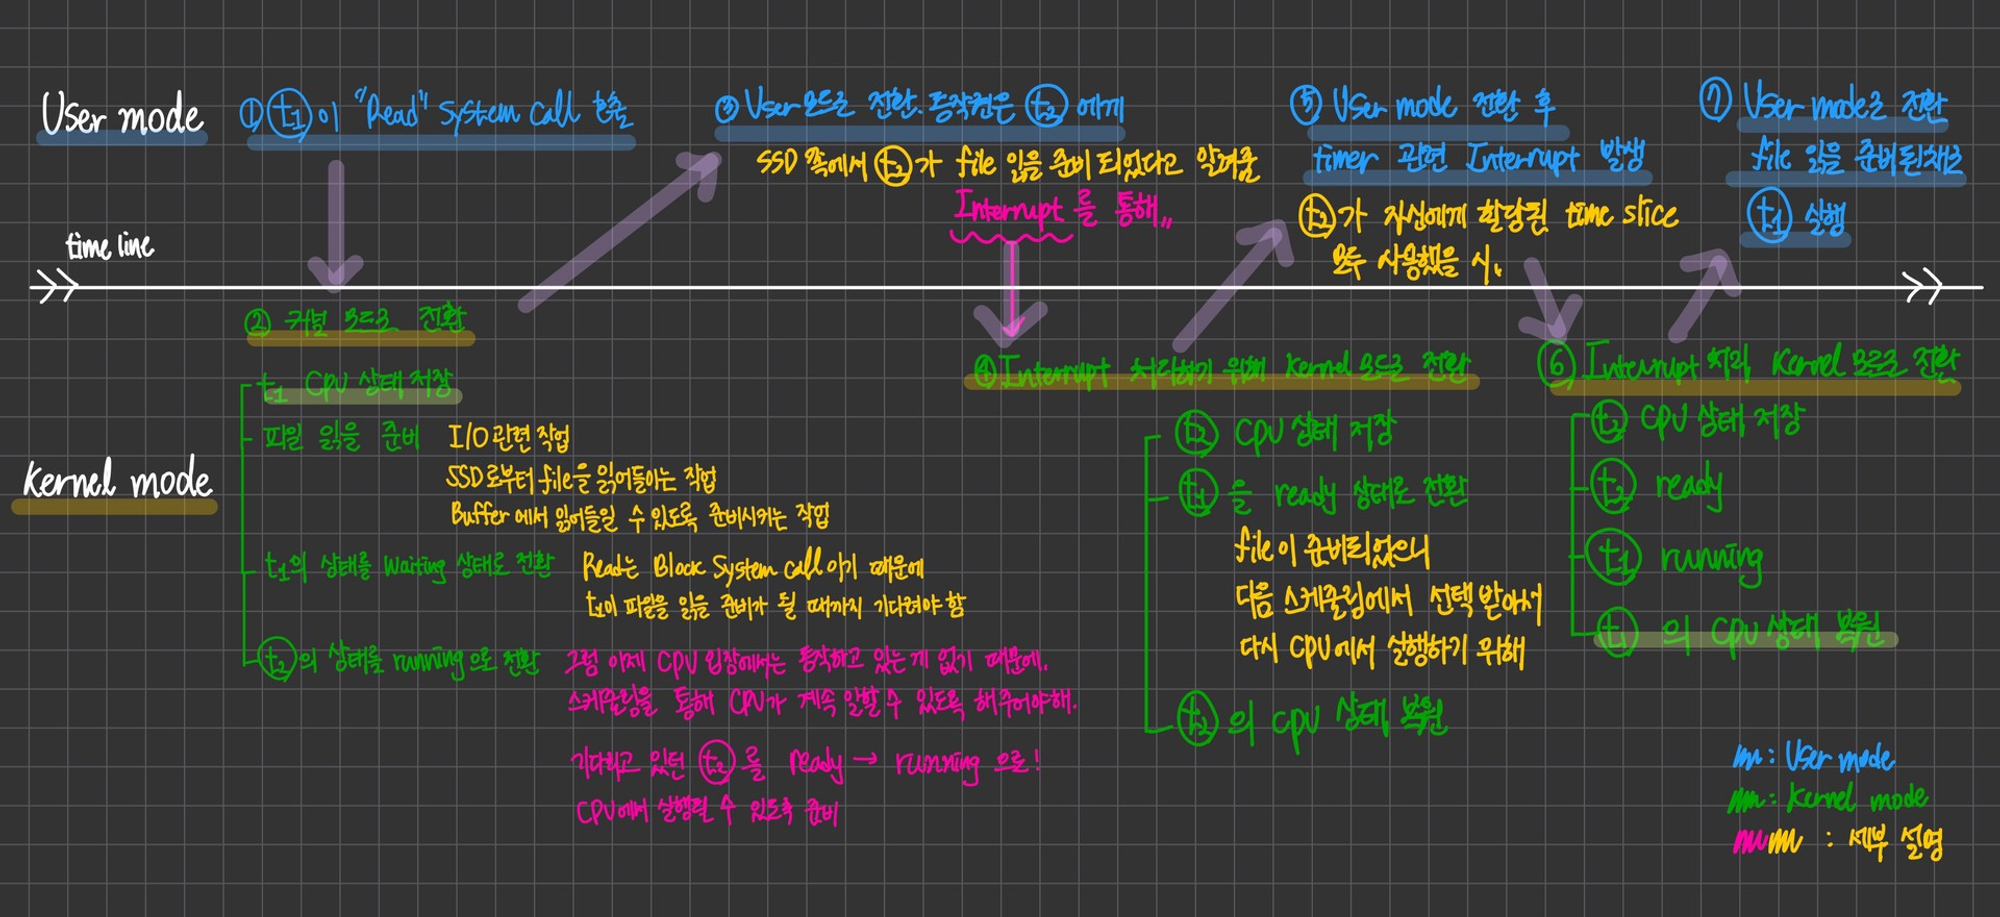 User mode
① t₁이 "Read" System Call 호출
③ User 모드로 전환. 동작권은 t₂에게
SSD 쪽에서 t₂가 file 읽을 준비 되었다고 알려줌
Interrupt를 통해,,
⑤ User mode 전환 후
timer 관련 Interrupt 발생
t₂가 자신에게 할당된 time slice
모두 사용했을 시,
⑦ User mode로 전환
file 읽을 준비된채로
t₁ 실행
time line
② 커널 모드로 전환
t₁ CPU 상태 저장
파일 읽을 준비 I/O 관련 작업
SSD로부터 file을 읽어들이는 작업
Buffer에서 읽어들일 수 있도록 준비시키는 작업
Kernel mode
t₁의 상태를 Waiting 상태로 전환 Read는 Block System call 이기 때문에
t₁이 파일을 읽을 준비가 될 때까지 기다려야 함
t₂의 상태를 running으로 전환 그럼 이제 CPU 입장에서는 동작하고 있는게 없기 때문에,
스케줄링을 통해 CPU가 계속 일할 수 있도록 해주어야해.
기다리고 있던 t₂를 ready → running 으로!
CPU에서 실행될 수 있도록 준비
④ Interrupt 처리하기 위해 Kernel 모드로 전환
t₂ CPU 상태 저장
t₁을 ready 상태로 전환
file이 준비되었으니
다음 스케줄링에서 선택 받아서
다시 CPU에서 실행하기 위해
t₂의 CPU 상태 복원
⑥ Interrupt 처리, Kernel 모드로 전환
t₂ CPU 상태 저장
t₂ ready
t₁ running
t₁의 CPU 상태 복원
: User mode
: Kernel mode
: 세부 설명